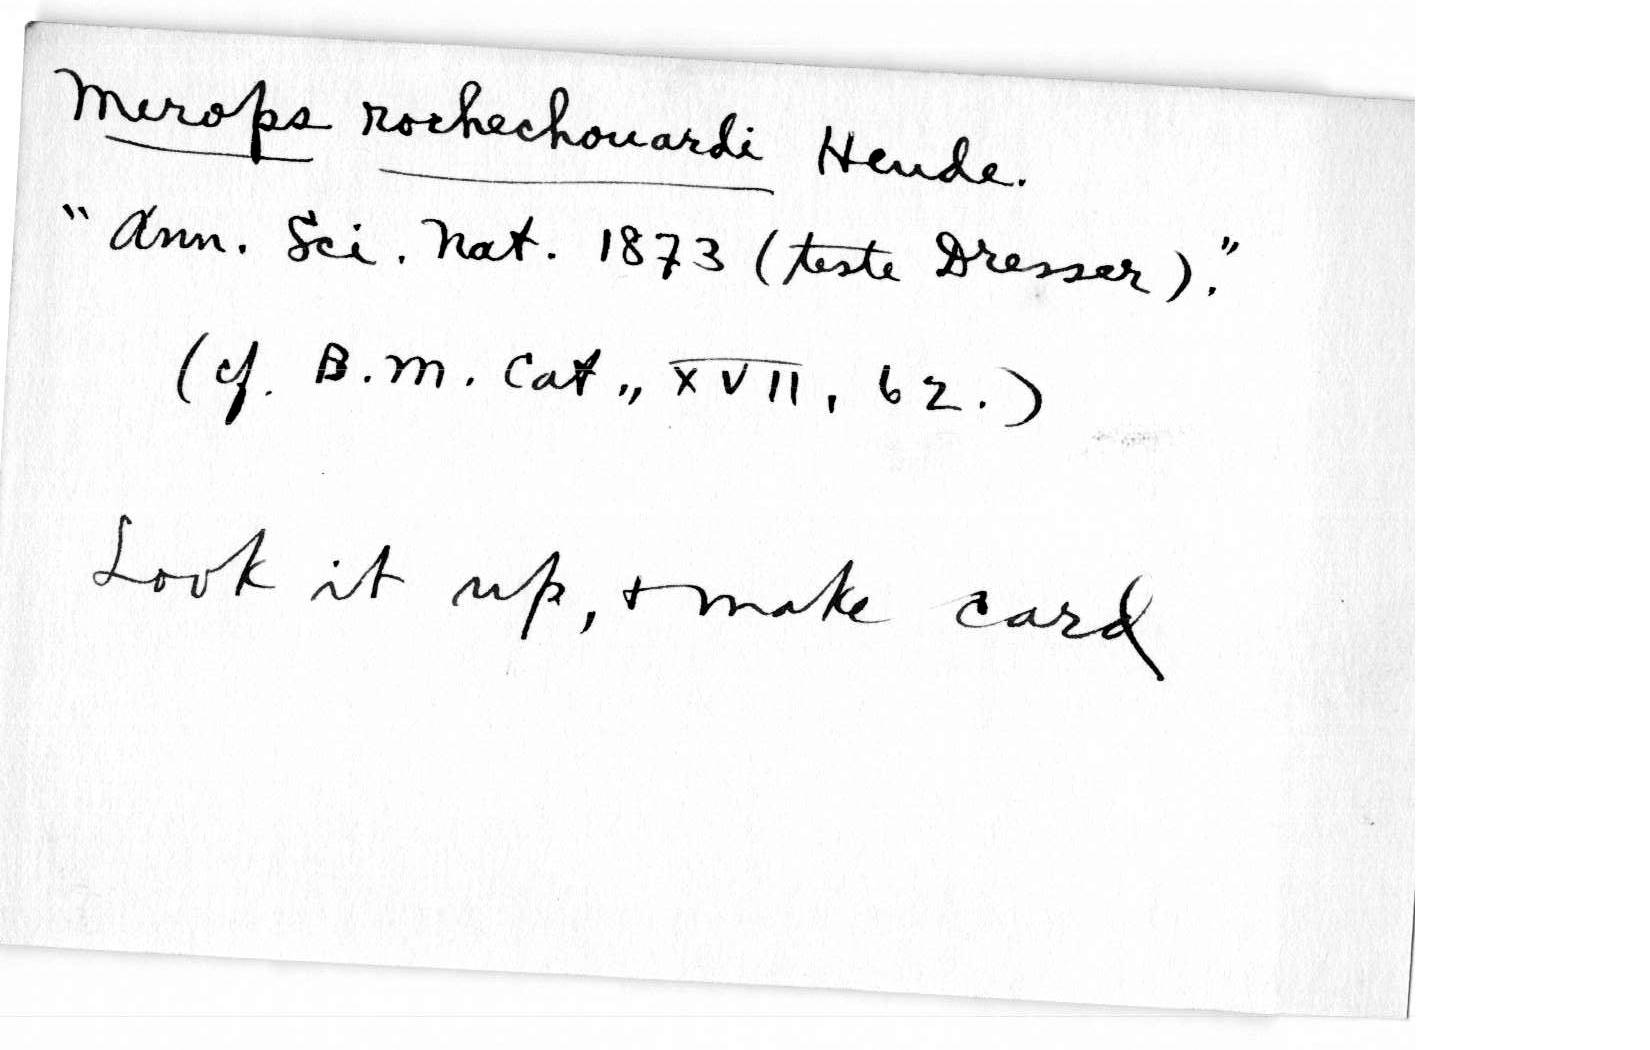 Merops rochechouardi Heude.
"Ann. Sci. Nat. 1873 (teste Dresser)."
(cf. B.M. Cat., XVII, 62.)
Look it up, + make card